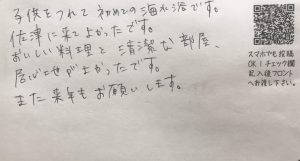 子供をつれて初めての海水浴です。
佐津に来てよかったです。
おいしい料理と清潔な部屋、
居心地がよかったです。
また来年もお願いします。
スマホでも投稿
OK！チェック欄
記入後フロント
へお渡し下さい。